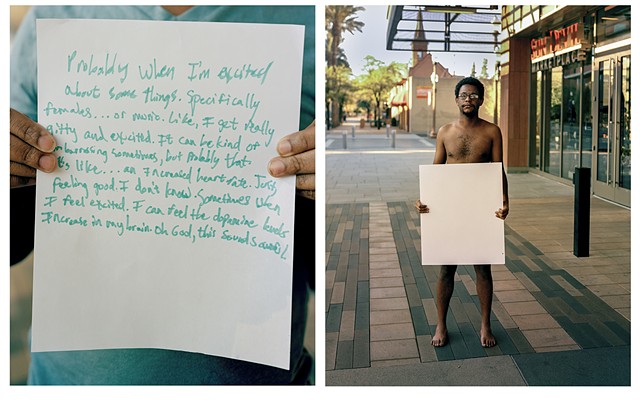 Probably when I'm excited
about some things. Specifically
females... or music. Like, I get really
gitty and excited. It can be kind of
embarrassing sometimes, but probably that.
It's like... an increased heart rate. Just
feeling good. I don't know. Sometimes when
I feel excited. I can feel the dopamine levels
Increase in my brain. Oh God, this sounds
MARKETPLACE